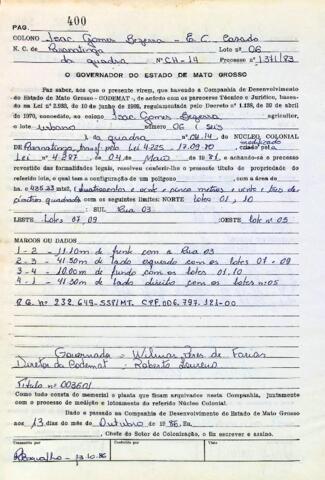 PÁG. 400
COLONO Isac Gomes Bezerra - E.C. Casado
N. C. de Paranatinga Lote nº 06
da quadra CH-14 Processo nº 1371/83
O GOVERNADOR DO ESTADO DE MATO GROSSO
Faz saber, aos que o presente virem, que havendo a Companhia de Desenvolvimento
do Estado de Mato Grosso - CODEMAT -, de acordo com os pareceres Técnico e Jurídico, basea-
da na Lei nº de de junho de regulamentado pelo Decreto nº de de abril
de 1970, concedido, ao colono Isac Gomes Bezerra agricultor,
o lote urbano número 06 (seis
da quadra CH-14 DO NÚCLEO COLONIAL
modificado
de Paranatinga, transf. pela Lei criado pela
Lei nº de 04 de Maio de 1981. e achando-se o processo
revestido das formalidades legais, resolveu conferir-lhe o presente título de propriedade do
referido lote, o qual tem a configuração de um polígono , com a área de
(quatrocentos e vinte e cinco metros e vinte e três de-
címetros quadrados com os seguintes limites: NORTE Lotes 01, 10
SUL Rua 03
LESTE Lotes 07, 09 :OESTE lote nº 05
MARCOS OU DADOS
1 - 2 - 11.10m de frente com a Rua 03
2 - 3 - 41.50m de lado esquerdo com os lotes 07 e 09
3 - 4 - 10.00m de fundo com os lotes 01, 10
4 - 1 - 41.50m de lado direito com os lotes nº 05
R.G. nº 232.649-SSP/MT. CPF. 006.797.121-00
Governador - Wilmar Peres de Farias
Diretor da Codemat - Roberto Loureiro
Título nº 003601
Como tudo consta do memorial e planta que ficam arquivados nesta Companhia, juntamente
com o processo de medição e loteamento do referido Núcleo Colonial.
Dado e passado na Companhia de Desenvolvimento do Estado de Mato Grosso
aos 13 dias do mês de Outubro de 1986. Eu,
, Chefe do Setor de Colonização, o fiz escrever e assino.
Escriturado por
Conferido por
Visto
13.10.86